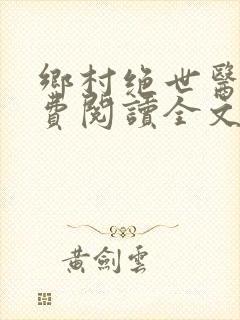 鄉村絶世醫
費閱讀全文
黃劍雲